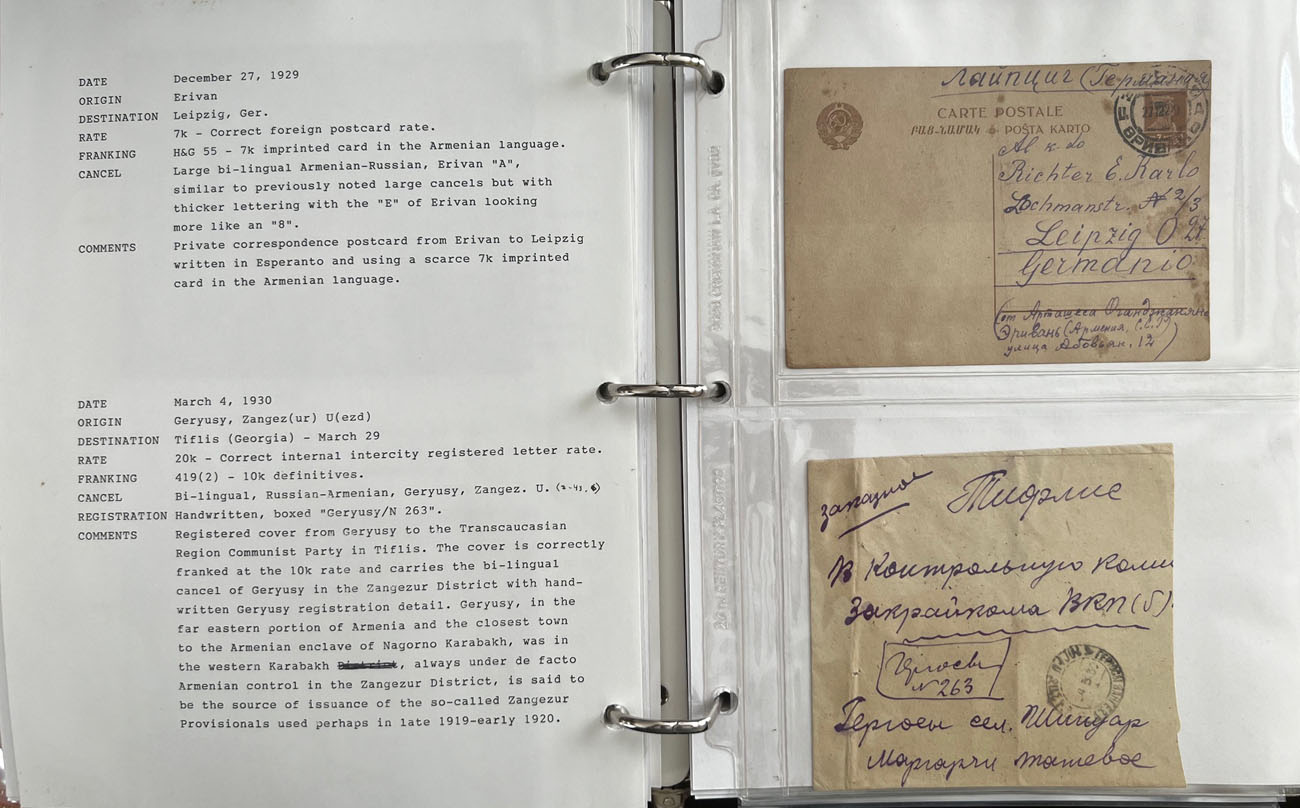 DATE December 27, 1929
ORIGIN Erivan
DESTINATION Leipzig, Ger.
RATE 7k - Correct foreign postcard rate.
FRANKING H&G 55 - 7k imprinted card in the Armenian language.
CANCEL Large bi-lingual Armenian-Russian, Erivan "A",
similar to previously noted large cancels but with
thicker lettering with the "E" of Erivan looking
more like an "8".
COMMENTS Private correspondence postcard from Erivan to Leipzig
written in Esperanto and using a scarce 7k imprinted
card in the Armenian language.
DATE March 4, 1930
ORIGIN Geryusy, Zangez(ur) U(ezd)
DESTINATION Tiflis (Georgia) - March 29
RATE 20k - Correct internal intercity registered letter rate.
FRANKING 419(2) - 10k definitives.
CANCEL Bi-lingual, Russian-Armenian, Geryusy, Zangez. U.
REGISTRATION Handwritten, boxed "Geryusy/N 263".
COMMENTS Registered cover from Geryusy to the Transcaucasian
Region Communist Party in Tiflis. The cover is correctly
franked at the 10k rate and carries the bi-lingual
cancel of Geryusy in the Zangezur District with hand-
written Geryusy registration detail. Geryusy, in the
far eastern portion of Armenia and the closest town
to the Armenian enclave of Nagorno Karabakh, was in
the western Karabakh District, always under de facto
Armenian control in the Zangezur District, is said to
be the source of issuance of the so-called Zangezur
Provisionals used perhaps in late 1919-early 1920.
Лайпциг (Германия
CARTE POSTALE
ԲԱՑ-ՆԱՄԱԿ POŜTA KARTO
Al k-do
Richter E. Karlo
Lochmanstr. № 2/3
Leipzig O 27
Germanio
(от Арташеса Оганджаняна
Эривань (Армения, С.С.Р.)
улица Абовьян, 12)
заказное Тифлис
В Контрольную Коми
Закрайкома ВКП(б).
Герюсы
N 263
Герюсы сел. Шинуар